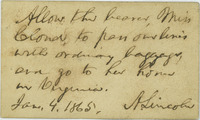 Allow the bearer, Miss
Cloud, to pass our lines
with ordinary baggage,
and go to her home
in Virginia.
Jan. 9, 1865. A. Lincoln